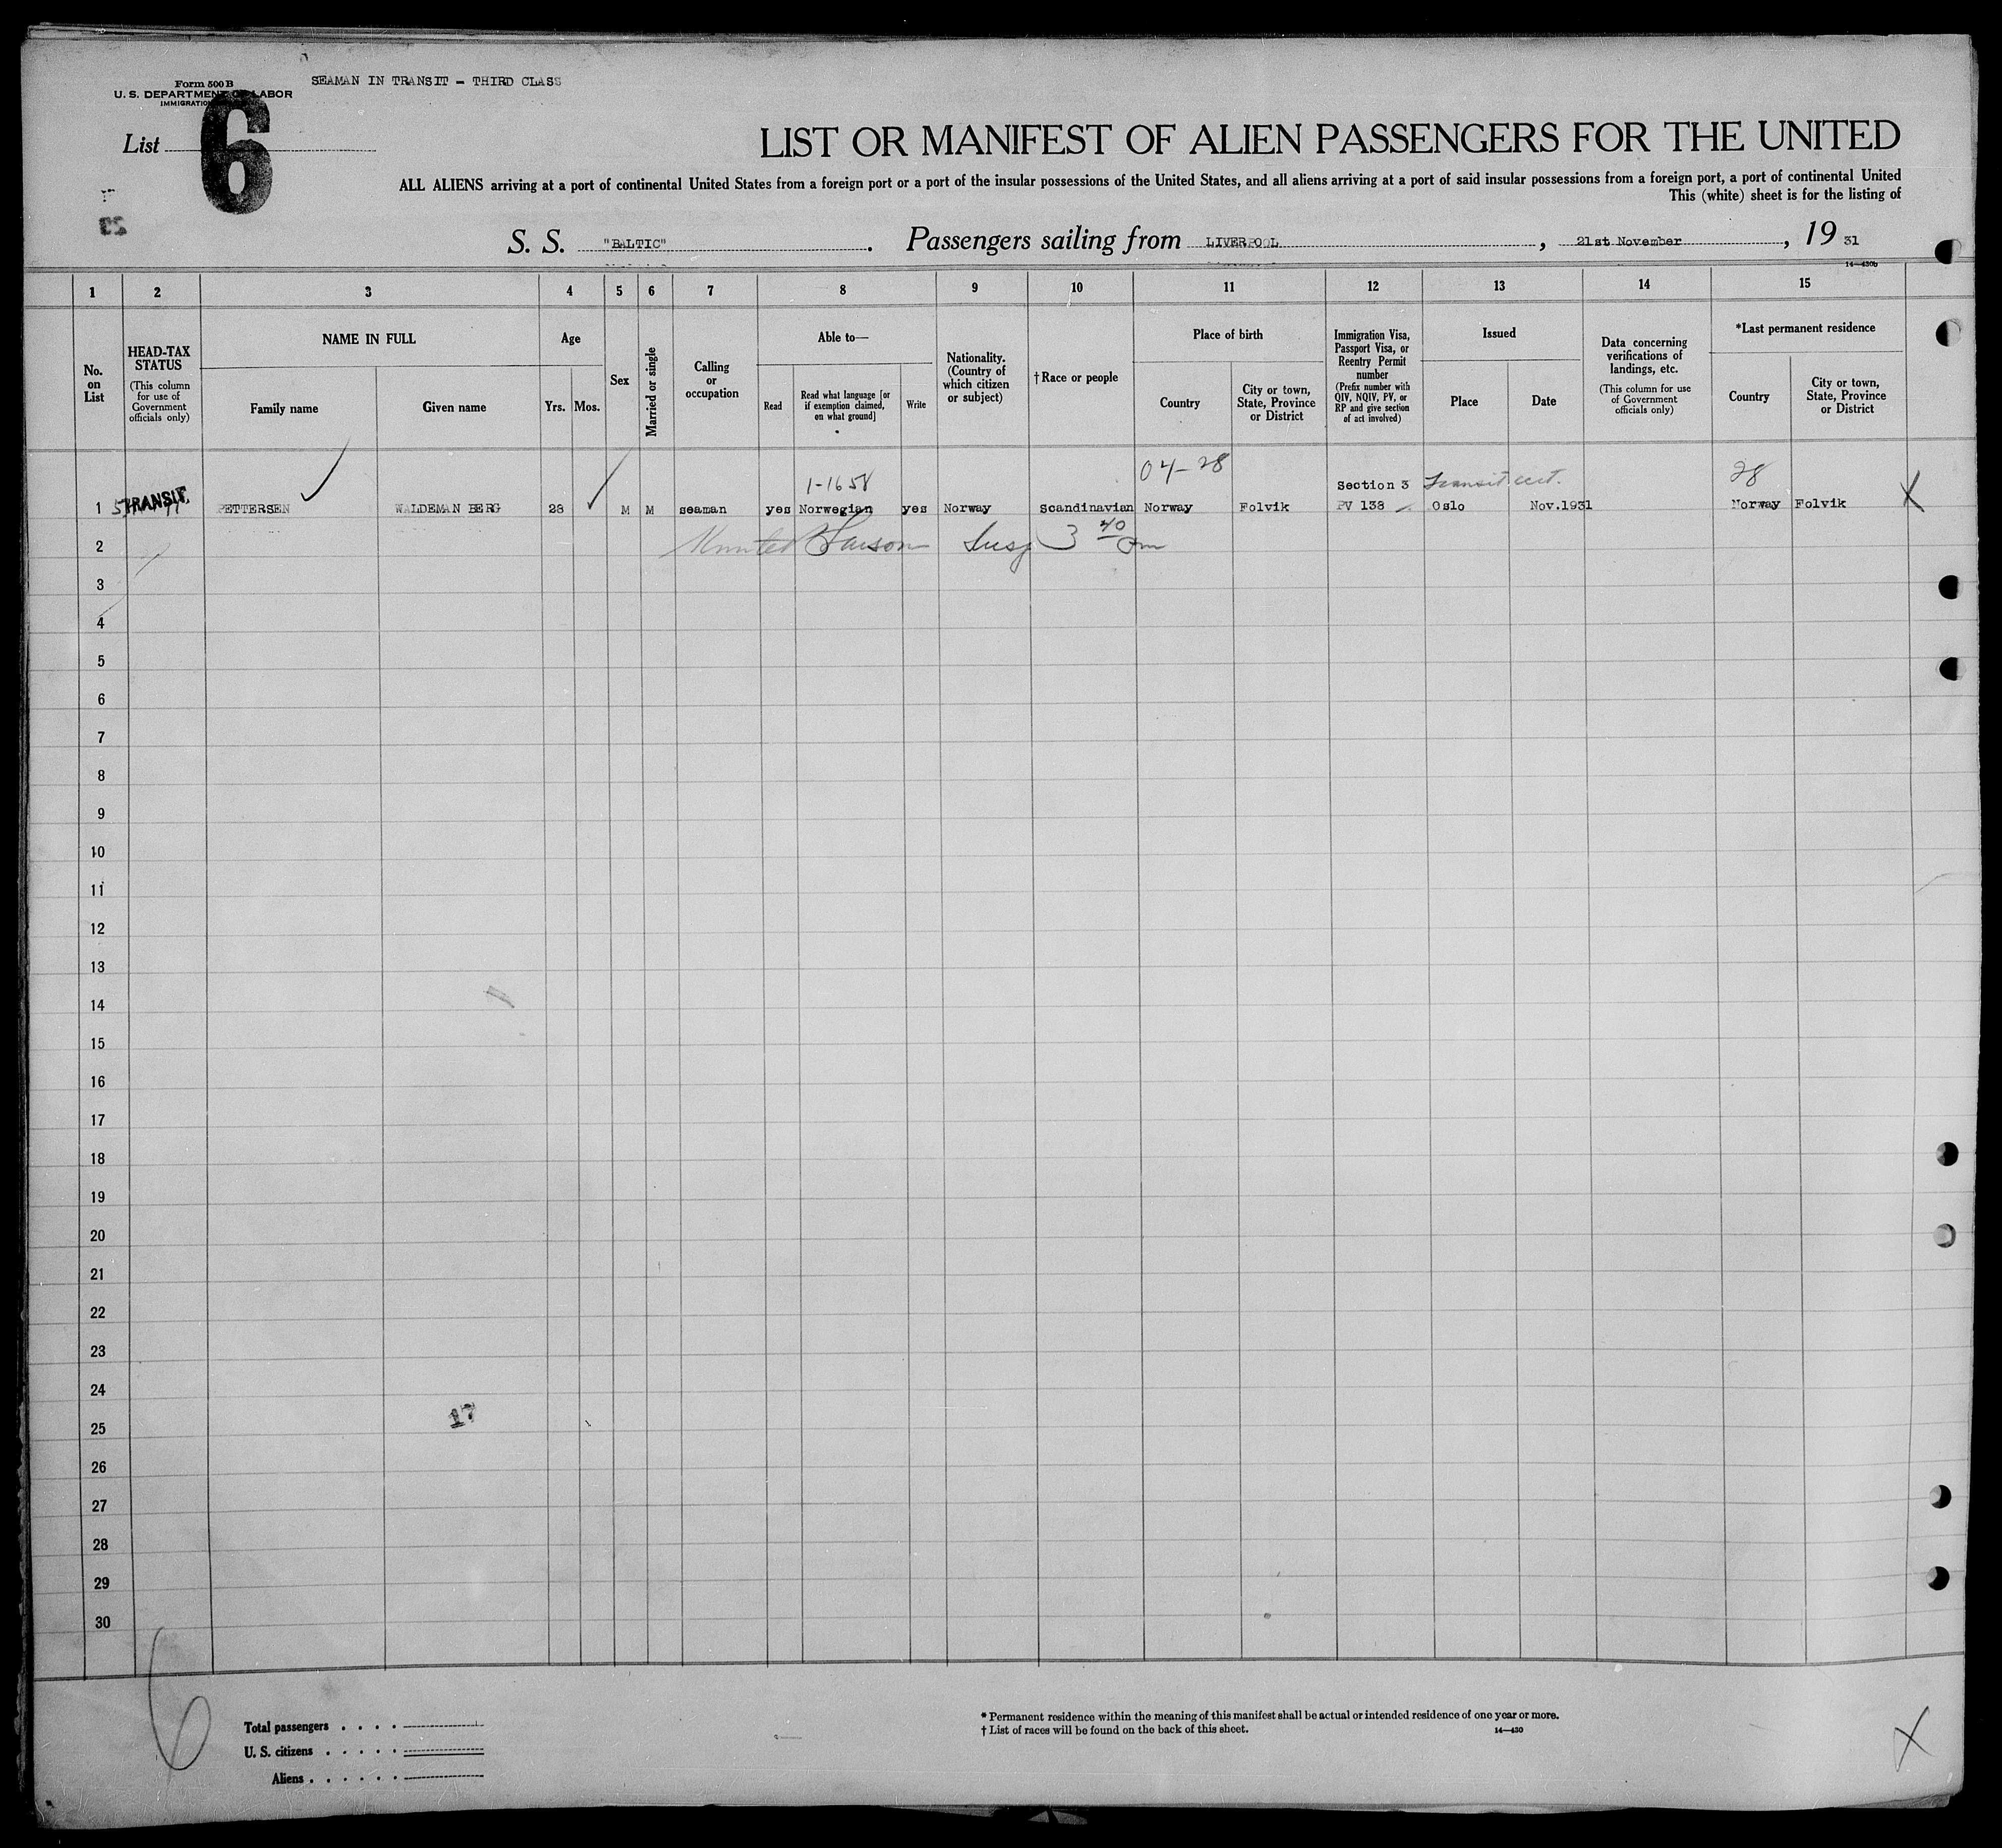 Form 500 B
SEAMAN IN TRANSIT – THIRD CLASS
U. S. DEPARTMENT OF LABOR
IMMIGRATION
List 6
LIST OR MANIFEST OF ALIEN PASSENGERS FOR THE UNITED
ALL ALIENS arriving at a port of continental United States from a foreign port or a port of the insular possessions of the United States, and all aliens arriving at a port of said insular possessions from a foreign port, a port of continental United
This (white) sheet is for the listing of
S. S. "BALTIC". Passengers sailing from LIVERPOOL, 21st November, 19 31
14—430b
1 2 3 4 5 6 7 8 9 10 11 12 13 14 15
No. on List
HEAD-TAX STATUS
(This column for use of Government officials only)
NAME IN FULL
Family name
Given name
Age
Yrs. Mos.
Sex
Married or single
Calling or occupation
Able to—
Read
Read what language [or if exemption claimed, on what ground]
Write
Nationality. (Country of which citizen or subject)
†Race or people
Place of birth
Country
City or town, State, Province or District
Immigration Visa, Passport Visa, or Reentry Permit number
(Prefix number with QIV, NQIV, PV, or RP and give section of act involved)
Issued
Place
Date
Data concerning verifications of landings, etc.
(This column for use of Government officials only)
*Last permanent residence
Country
City or town, State, Province or District
1-1658 04-28 Section 3 Transit cert. 28
1 TRANSIT. PETTERSEN WALDEMAN BERG 28 M M seaman yes Norwegian yes Norway Scandinavian Norway Folvik PV 138 Oslo Nov.1931 Norway Folvik X
2 3 40
3
4
5
6
7
8
9
10
11
12
13
14
15
16
17
18
19
20
21
22
23
24
17
25
26
27
28
29
30
6
Total passengers . . . .
U. S. citizens . . . . .
Aliens . . . . . .
* Permanent residence within the meaning of this manifest shall be actual or intended residence of one year or more.
† List of races will be found on the back of this sheet.
14—430
X